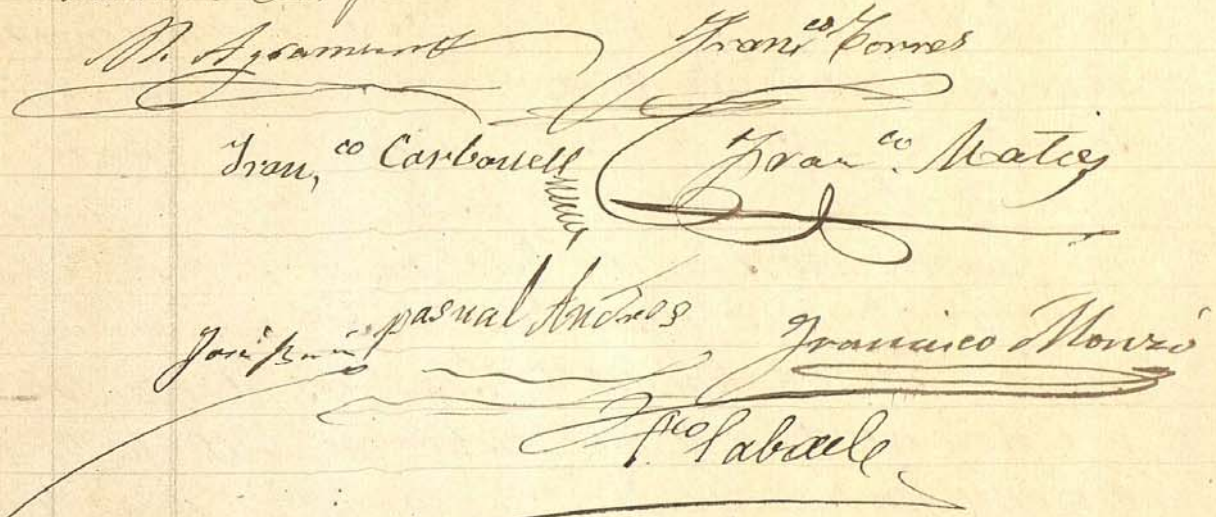 Agramunt Fran.co Torres
Fran,co Carbonell Fran co. Maties
José pasual Andres Francisco Monzó
Fco